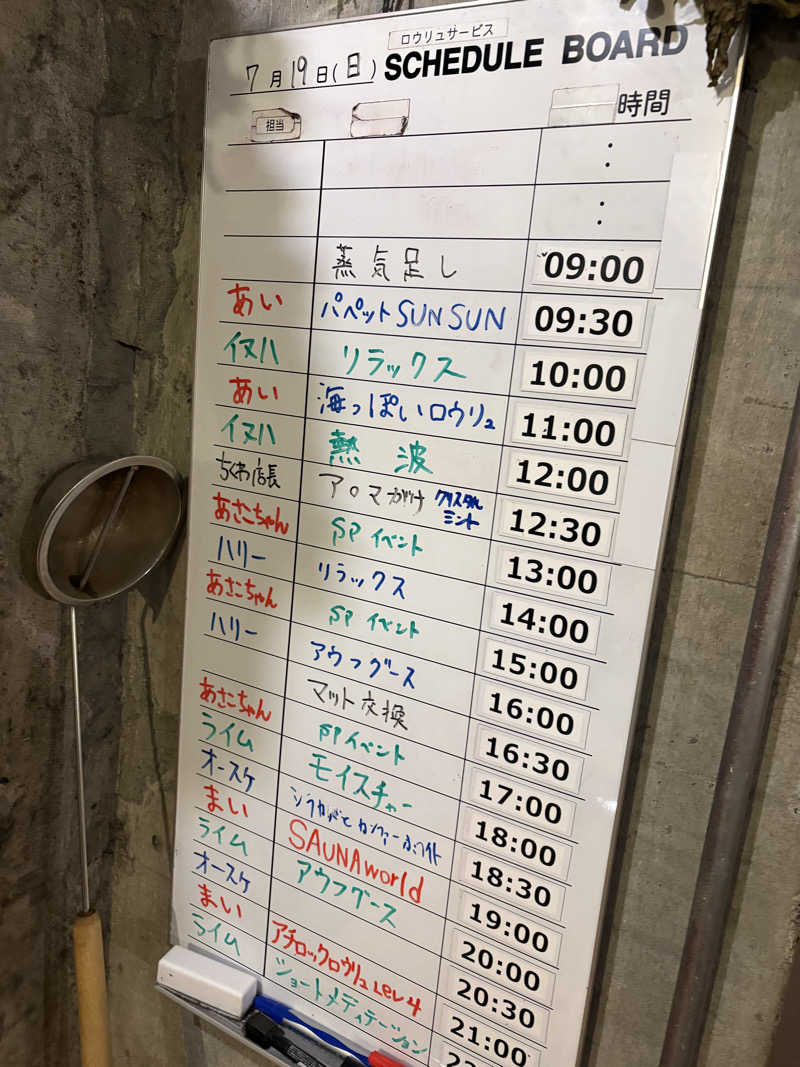 ロウリュサービス
7月19日(日) SCHEDULE BOARD
担当 時間
:
:
蒸気足し 09:00
あい パペットSUNSUN 09:30
イヌハ リラックス 10:00
あい 海っぽいロウリュ 11:00
イヌハ 熱波 12:00
ちくわ店長 アロマがけ クリスタルミント 12:30
あさこちゃん SPイベント 13:00
ハリー リラックス 14:00
あさこちゃん SPイベント 15:00
ハリー アウフグース 16:00
マット交換 16:30
あさこちゃん SPイベント 17:00
ライム モイスチャー 18:00
オースケ 18:30
まい SAUNAworld 19:00
ライム アウフグース 20:00
オースケ 20:30
まい アチロックロウリュ Lev 4 21:00
ライム ショートメディテーション